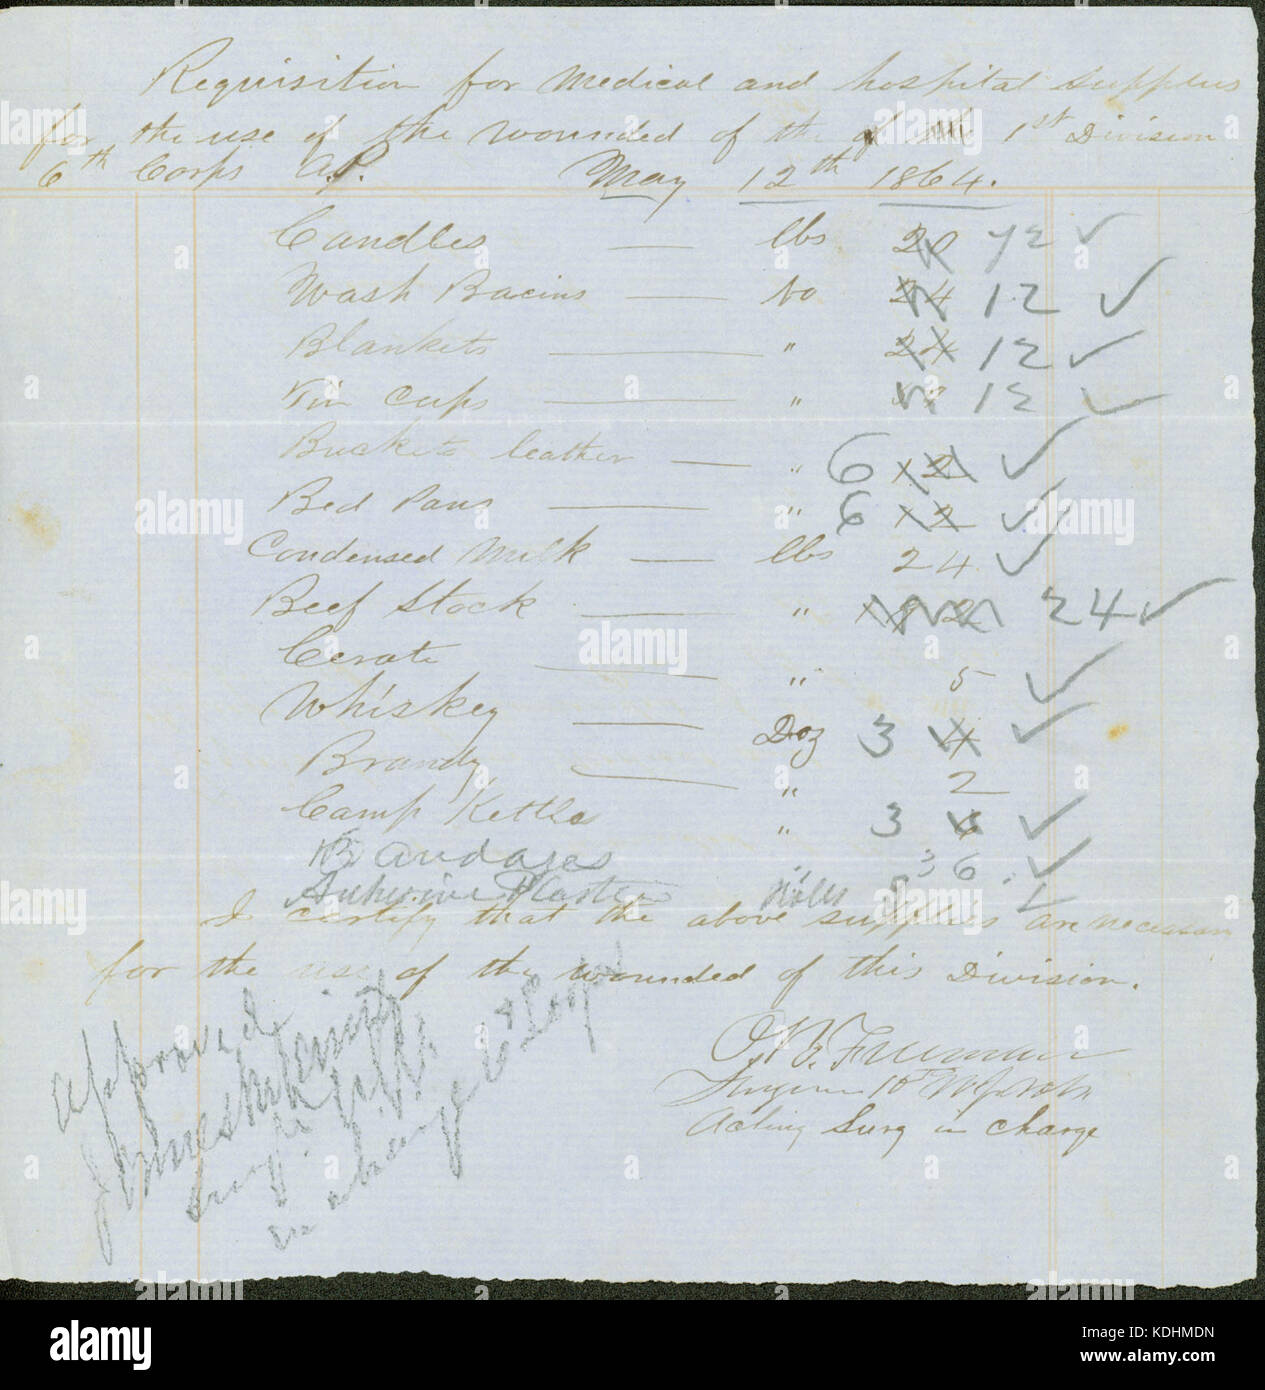 Requisition for Medical and hospital supplies
for the use of the wounded of the 1st Division
6th Corps A.P. May 12th 1864.
Candles lbs 20 72 ✓
Wash Bacins No 24 12 ✓
Blankets " 24 12 ✓
Tin Cups " 12 ✓
Buckets leather " 6 12 ✓
Bed Pans " 6 12 ✓
Condensed Milk lbs 24 ✓
Beef Stock " 24 ✓
Cerate " 5 ✓
Whiskey Doz 3 4 ✓
Brandy " 2
Camp Kettles " 3 6 ✓
Bandages " 36 ✓
Plaster
I certify that the above supplies are necessary
for the use of the wounded of this Division.
Approved
Freeman
Surgeon 10th
Acting Surg in Charge
in charge
alamy
a
alamy stock photo
KDHMDN
www.alamy.com